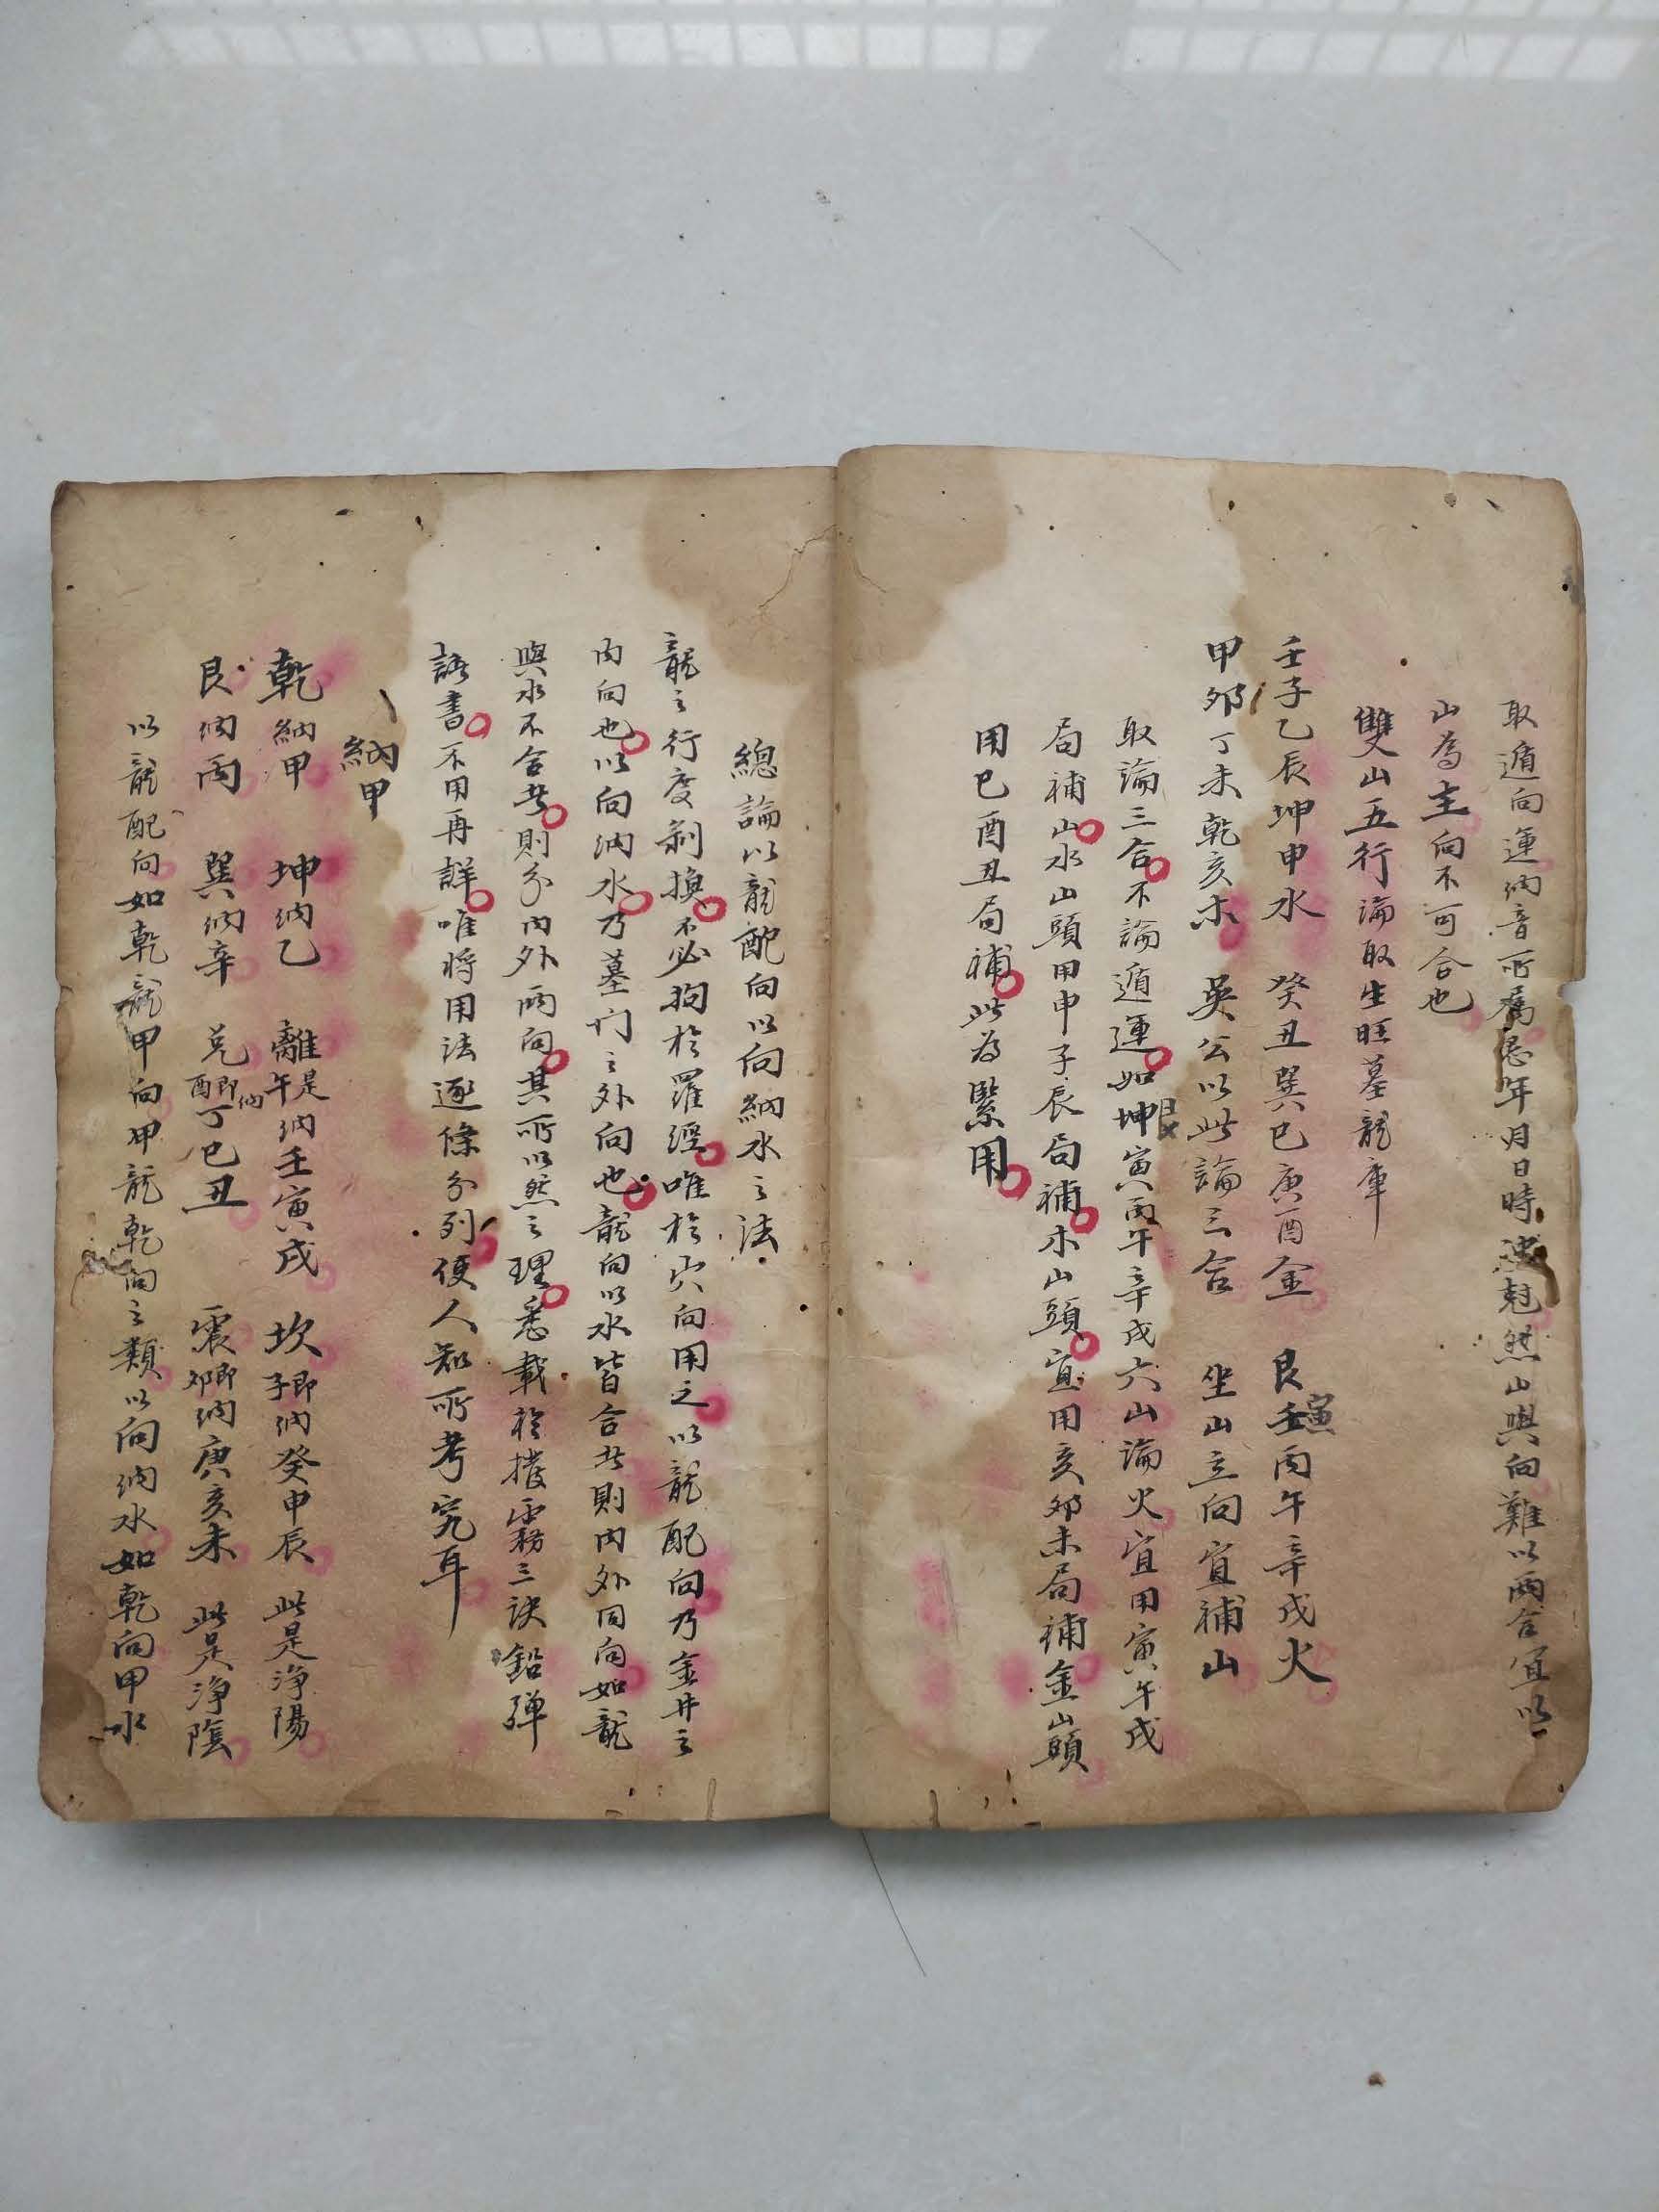 取遁向運納音所屬忌年月日時冲尅然山與向難以兩合宜以
山為主向不可合也
雙山五行論取生旺墓龍庫
壬子乙辰坤申水 癸丑巽巳庚酉金 艮壬寅丙午辛戌火
甲卯丁未乾亥木 吳公以此論三合 坐山立向宜補山
取論三合不論遁運如坤艮寅丙午辛戌六山論火宜用寅午戌
局補山水山頭用申子辰局補木山頭宜用亥卯未局補金山頭
用巳酉丑局補此為緊用
總論以龍配向以向納水之法
龍之行度剝換不必拘於羅經唯於穴向用之以龍配向乃金井之
內向也以向納水乃墓门之外向也龍向以水皆合者則內外同向如龍
與水不合者則分內外兩向其所以然之理悉載於撥霧三訣鉛彈
諸書不用再詳唯將用法逐條分列便人知所考究耳
納甲
乾納甲 坤納乙 離是午納壬寅戌 坎即子納癸申辰 此是淨陽
艮納丙 巽納辛 兌即酉納丁巳丑 震即卯納庚亥未 此是淨陰
以龍配向如乾龍甲向甲龍乾向之類以向納水如乾向甲水